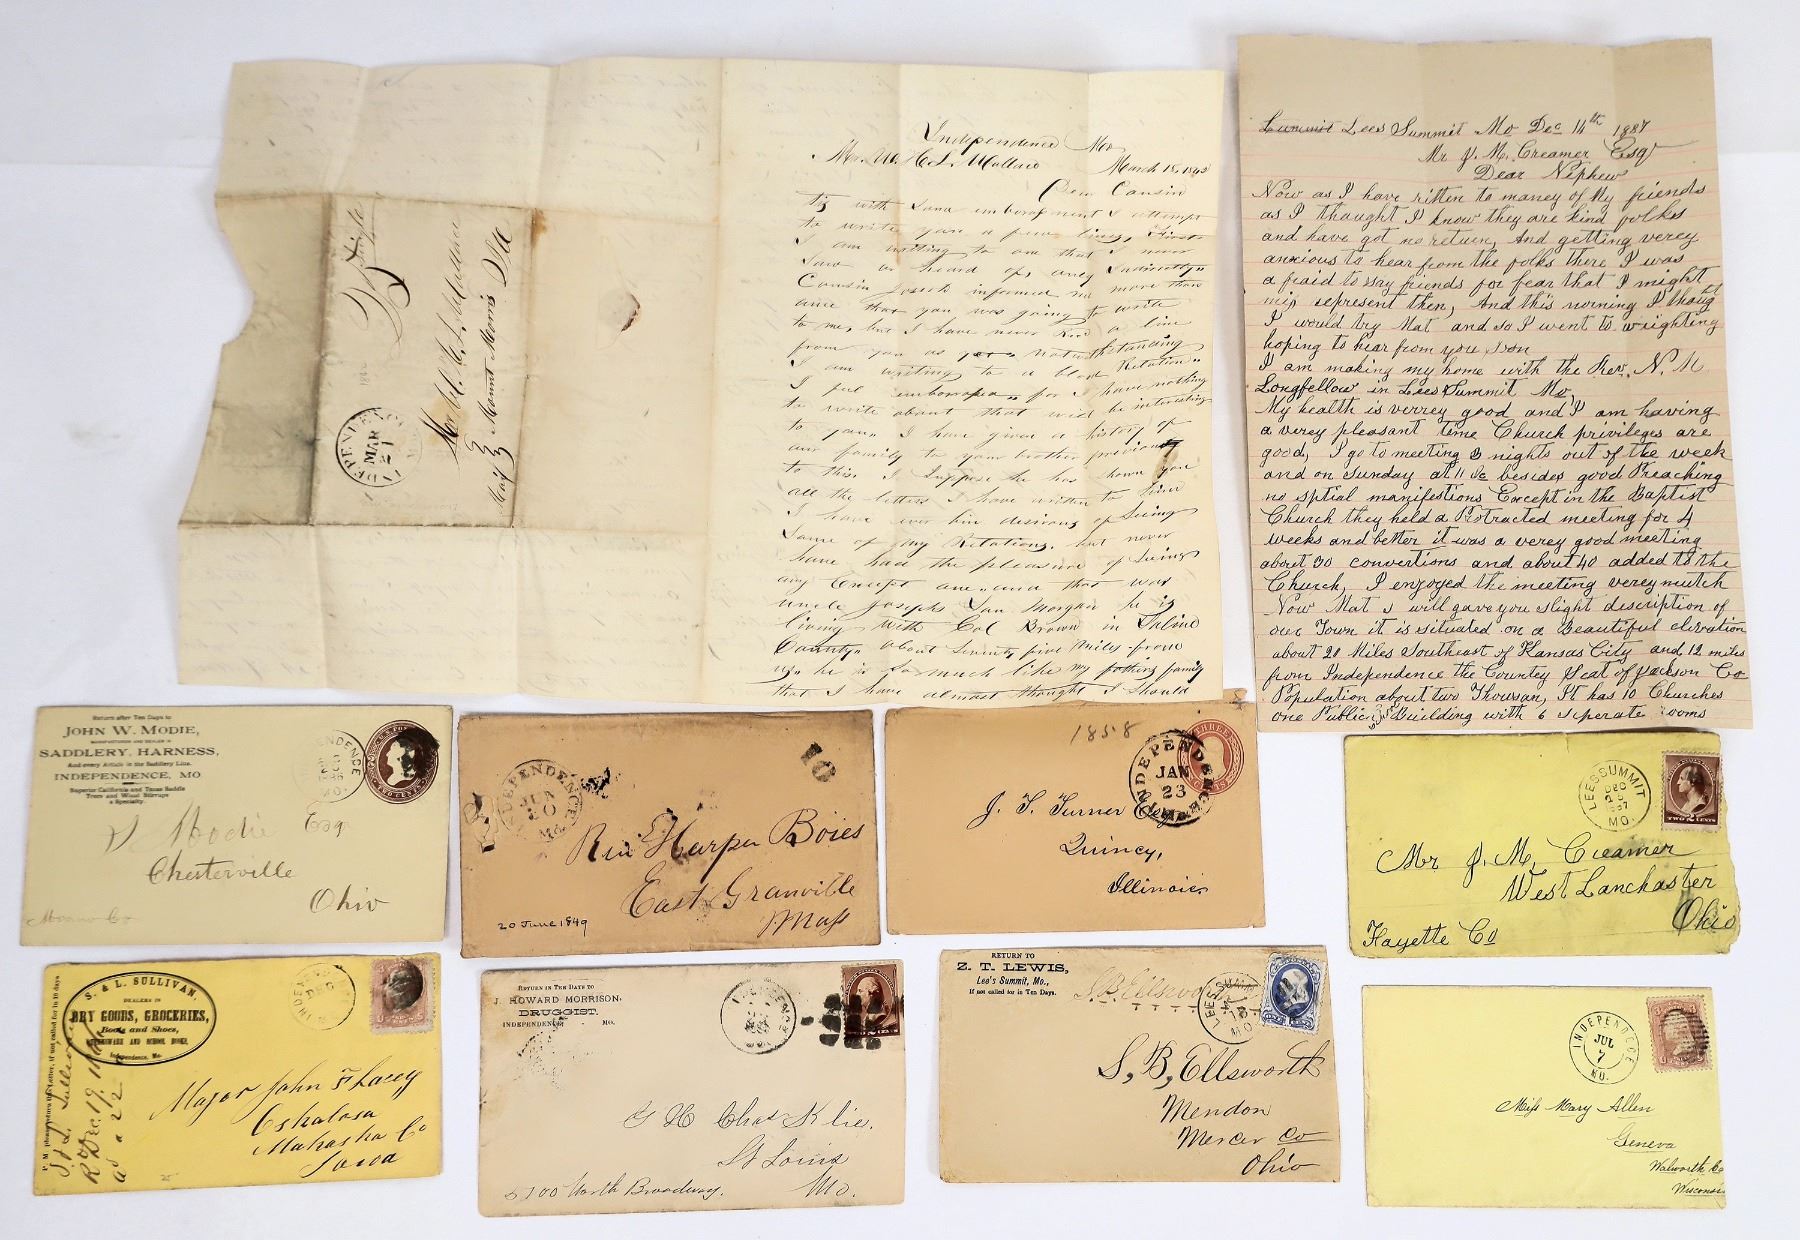 Independence Mo
March 18, 1843
Dear Cousin
It is with some embarrassment I attempt
to write you a few lines, First
I am writing to one that I never
Saw or heard of, only Indirectly
Cousin Joseph informed me more than
once that you was going to write
to me, but I have never Recd a line
from you as yet notwithstanding
I am writing to a blood Relation
I feel embarrassed for I have nothing
to write about that will be interesting
to you. I have given a history of
our family to your brother previous
to this. I Suppose he has shown you
all the letters I have written to him
I have ever bin desirous of Seeing
Some of my Relations, but never
have had the pleasure of Seeing
any Except one and that was
uncle Josephs Son Morgan he is
living with Col Brown in Saline
County about Seventy five Miles from
us he is So much like my fathers family
that I have almost thought I should
INDEPENDENCE
MAR
21
Mount Morris
Lees Summit Mo Dec 14th 1887
Mr J. M. Creamer Esqr
Dear Nephew
Now as I have ritten to maney of My friends
as I thaught I know they are kind folkes
and have got no return, And getting verey
anxious to hear from the folks there I was
a fraid to say friends for fear that I might
mis represent then, And this morning I thaught
I would try Mat and so I went to wrighting
hoping to hear from you soon
I am making my home with the Rev. N. M
Longfellow in Lees Summit Mo,
My health is verrey good and I am having
a verey pleasent time Church privileges are
good, I go to meeting 3 nights out of the week
and on Sunday at 11 oc besides good Preaching
no sptial manifestions Except in the Baptist
Church they held a Protracted meeting for 4
weeks and better it was a verey good meeting
about 30 convertions and about 40 added to the
Church, I enjoyed the meeting verey mutch
Now Mat I will gave you slight description of
our Town it is situated on a Beautiful elevation
about 20 Miles Southeast of Kansas City and 12 miles
from Independence the Countey Seat of Jackson Co
Population about two Thowsan, It has 10 Churches
one Public Building with 6 seperate rooms
Return after Ten Days to
JOHN W. MODIE,
MANUFACTURER AND DEALER IN
SADDLERY, HARNESS,
And every Article in the Saddlery Line.
INDEPENDENCE, MO
Superior California and Texas Saddle
Trees and Wood Stirrups
a Specialty.
TWO CENTS
Modie Esq
Chesterville
Ohio
Morrow Co
INDEPENDENCE
JUN
20
Mo
10
Harper Boies
East Granville
Mass
20 June 1849
1858
INDEPENDENCE
JAN
23
THREE
J. T. Turner Esq
Quincy,
Illinois
LEES SUMMIT
MO.
TWO CENTS
Mr J. M. Creamer
West Lanckaster
Ohio
Fayette Co
S. & L. SULLIVAN,
DEALERS IN
DRY GOODS, GROCERIES,
Boots and Shoes,
QUEENSWARE AND SCHOOL BOOKS,
Independence, Mo.
Major John F Lacey
Oskaloosa
Mahaska Co
Iowa
25
RETURN IN TEN DAYS TO
J. HOWARD MORRISON,
DRUGGIST.
INDEPENDENCE, MO.
St Louis
Mo.
5100 North Broadway.
RETURN TO
Z. T. LEWIS,
Lee's Summit, Mo.,
If not called for in Ten Days.
S B Ellsworth
S, B, Ellsworth
Mendon
Mercer Co
Ohio
INDEPENDENCE
JUL
7
MO.
Miss Mary Allen
Geneva
Walworth Co
Wisconsin